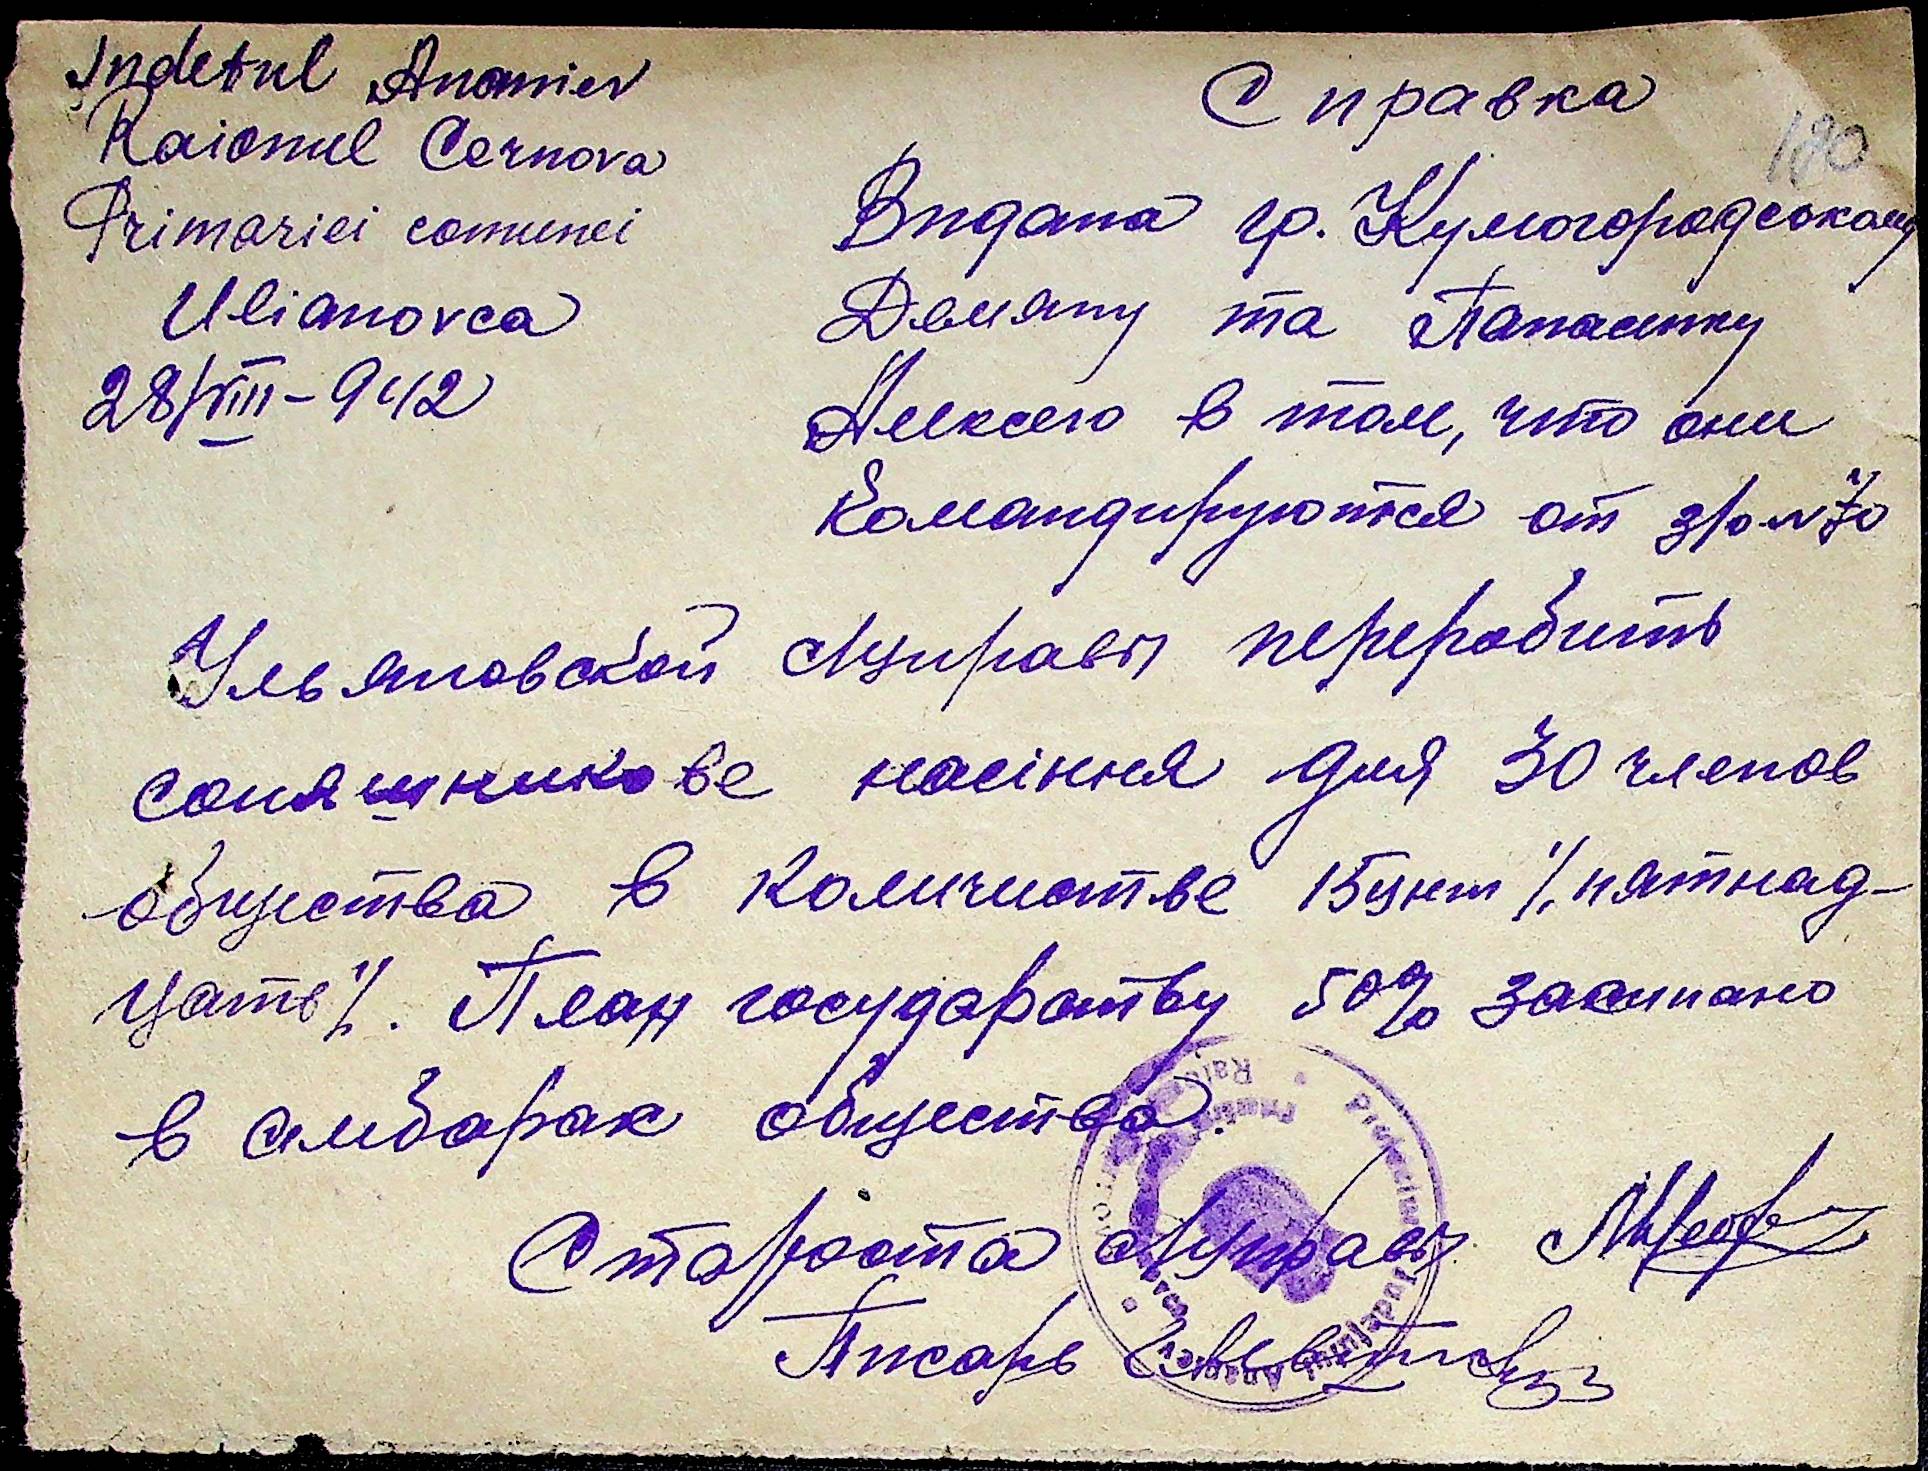 Indetul Ananiev
Raionul Cernova
Primariei comunei
Ulianovca
28/VIII-942
Справка
120
Видана гр. Кумогородському
Демяну та Панасюку
Алексею в том, что они
командируются от з/о №70
Ульяновской Управы переробить
соняшникове насіння для 30 членов
общества в количистве 15 цнт /.пятнад-
цать/. План государству 50% засыпано
в амбарах общества.
Староста Управы
Писарь